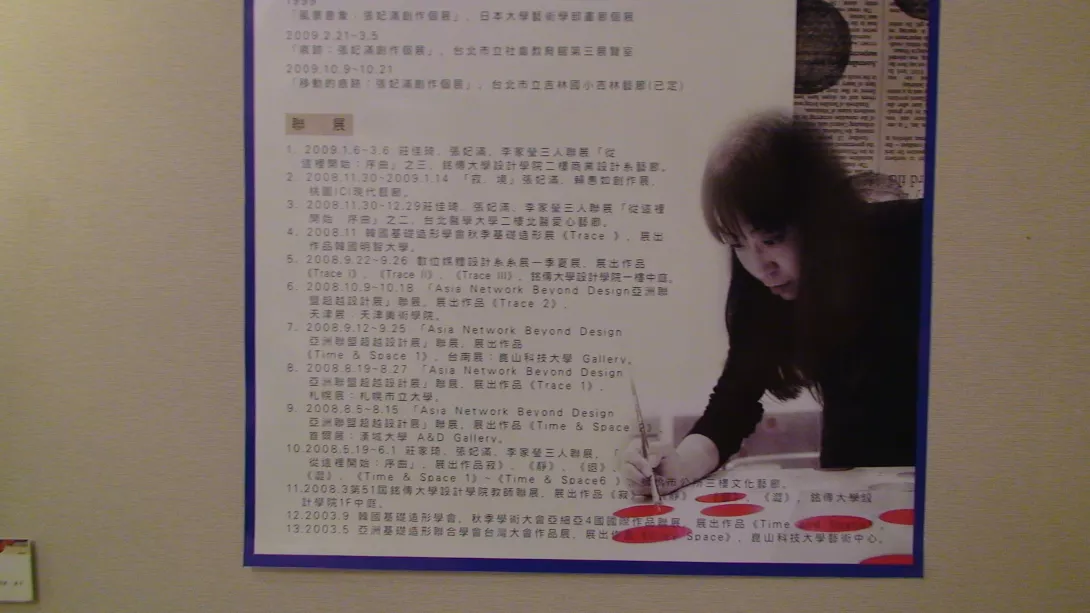 1999
「風景意象：張妃滿創作個展」，日本大學藝術學部畫廊個展
2009.2.21~3.5
「痕跡：張妃滿創作個展」，台北市立社會教育館第三展覽室
2009.10.9~10.21
「移動的痕跡：張妃滿創作個展」，台北市立吉林國小吉林藝廊(已定)
聯 展
1. 2009.1.6~3.6 莊佳琦、張妃滿、李家瑩三人聯展「從
這裡開始：序曲」之三，銘傳大學設計學院二樓商業設計系藝廊。
2. 2008.11.30~2009.1.14 「寂．境」張妃滿、賴惠如創作展，
桃園ICI現代藝廊。
3. 2008.11.30~12.29莊佳琦、張妃滿、李家瑩三人聯展「從這裡
開始 序曲」之二，台北醫學大學二樓北醫愛心藝廊。
4. 2008.11 韓國基礎造形學會秋季基礎造形展《Trace 》，展出
作品韓國明智大學。
5. 2008.9.22~9.26 數位媒體設計系系展－季夏展，展出作品
《Trace I》、《Trace II》、《Trace III》，銘傳大學設計學院一樓中庭。
6. 2008.10.9~10.18 「Asia Network Beyond Design亞洲聯
盟超越設計展」聯展，展出作品《Trace 2》，
天津展：天津美術學院。
7. 2008.9.12~9.25 「Asia Network Beyond Design
亞洲聯盟超越設計展」聯展，展出作品
《Time & Space 1》，台南展：崑山科技大學 Gallery。
8. 2008.8.19~8.27 「Asia Network Beyond Design
亞洲聯盟超越設計展」聯展，展出作品《Trace 1》，
札幌展：札幌市立大學。
9. 2008.8.5~8.15 「Asia Network Beyond Design
亞洲聯盟超越設計展」聯展，展出作品《Time & Space 2》，
首爾展：漢城大學 A&D Gallery。
10.2008.5.19~6.1 莊家琦、張妃滿、李家瑩三人聯展，「
從這裡開始：序曲」，展出作品寂》、《靜》、《迴》、
《遊》、《Time & Space 1》~《Time & Space6 》，
三樓文化藝廊。
11.2008.3第51屆銘傳大學設計學院教師聯展，展出作品《寂》、《靜》、《遊》，銘傳大學設
計學院1F中庭。
12.2003.9 韓國基礎造形學會，秋季學術大會亞細亞4國國際作品聯展，展出作品《Time and Space》，
13.2003.5 亞洲基礎造形聯合學會台灣大會作品展，展出作品 Space》，崑山科技大學藝術中心。